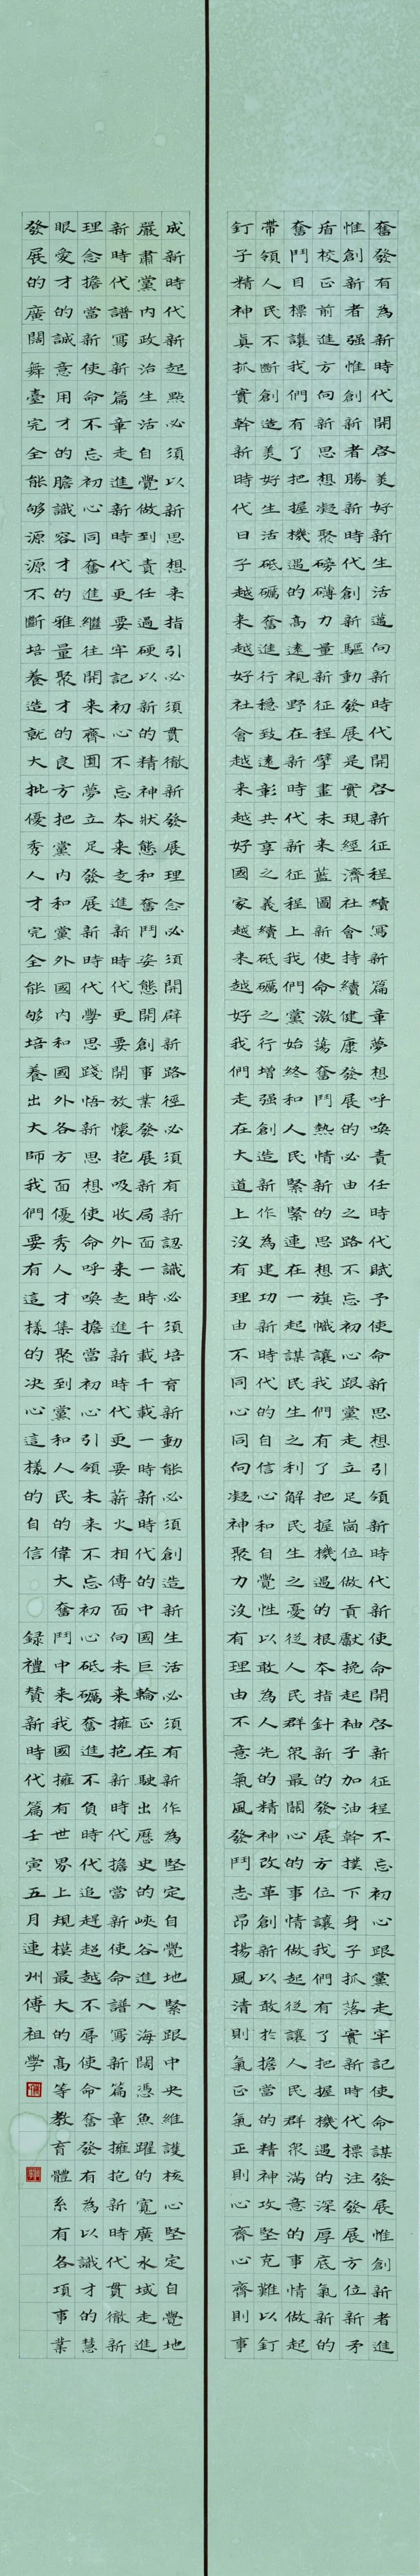 奮發有為新時代開啓美好新生活邁向新時代開啓新征程續寫新篇章夢想呼喚責任時代賦予使命新思想引領新時代新使命開啓新征程不忘初心跟黨走牢記使命謀發展惟創新者進
惟創新者强惟創新者勝新時代創新驅動發展是實現經濟社會持續健康發展的必由之路不忘初心跟黨走立足崗位做貢獻挽起袖子加油幹撲下身子抓落實新時代標注發展方位新矛
盾校正前進方向新思想凝聚磅礴力量新征程擘畫未来藍圖新使命激蕩奮鬥熱情新的思想旗幟讓我們有了把握機遇的根本指針新的發展方位讓我們有了把握機遇的深厚底氣新的
奮鬥目標讓我們有了把握機遇的高遠視野在新時代新征程上我們黨始終和人民緊緊連在一起謀民生之利解民生之憂從人民群衆最關心的事情做起從讓人民群衆滿意的事情做起
帶領人民不斷創造美好生活砥礪奮進行穩致遠彰共享之義續砥礪之行增强創造新作為建功新時代的自信心和自覺性以敢為人先的精神改革創新以敢於擔當的精神攻堅克難以釘
釘子精神真抓實幹新時代日子越来越好社會越来越好國家越来越好我們走在大道上没有理由不同心同向凝神聚力没有理由不意氣風發鬥志昂揚風清則氣正氣正則心齊心齊則事
成新時代新起點必須以新思想来指引必須貫徹新發展理念必須開辟新路徑必須有新認識必須培育新動能必須創造新生活必須有新作為堅定自覺地緊跟中央維護核心堅定自覺地
嚴肅黨内政治生活自覺做到責任過硬以新的精神狀態和奮鬥姿態開創事業發展新局面一時千載千載一時新時代的中國巨輪正在駛出歷史的峽谷進入海闊憑魚躍的寬廣水域走進
新時代譜寫新篇章走進新時代更要牢記初心不忘本来走進新時代更要開放懷抱吸收外来走進新時代更要薪火相傳面向未来擁抱新時代擔當新使命譜寫新篇章擁抱新時代貫徹新
理念擔當新使命不忘初心同奮進繼往開来齊圓夢立足發展新時代學思踐悟新思想使命呼喚擔當初心引領未来不忘初心砥礪奮進不負時代追趕超越不辱使命奮發有為以識才的慧
眼愛才的誠意用才的膽識容才的雅量聚才的良方把黨内和黨外國内和國外各方面優秀人才集聚到黨和人民的偉大奮鬥中来我國擁有世界上規模最大的高等教育體系有各項事業
發展的廣闊舞臺完全能够源源不斷培養造就大批優秀人才完全能够培養出大師我們要有這樣的决心這樣的自信 録禮贊新時代篇壬寅五月連州傅祖學